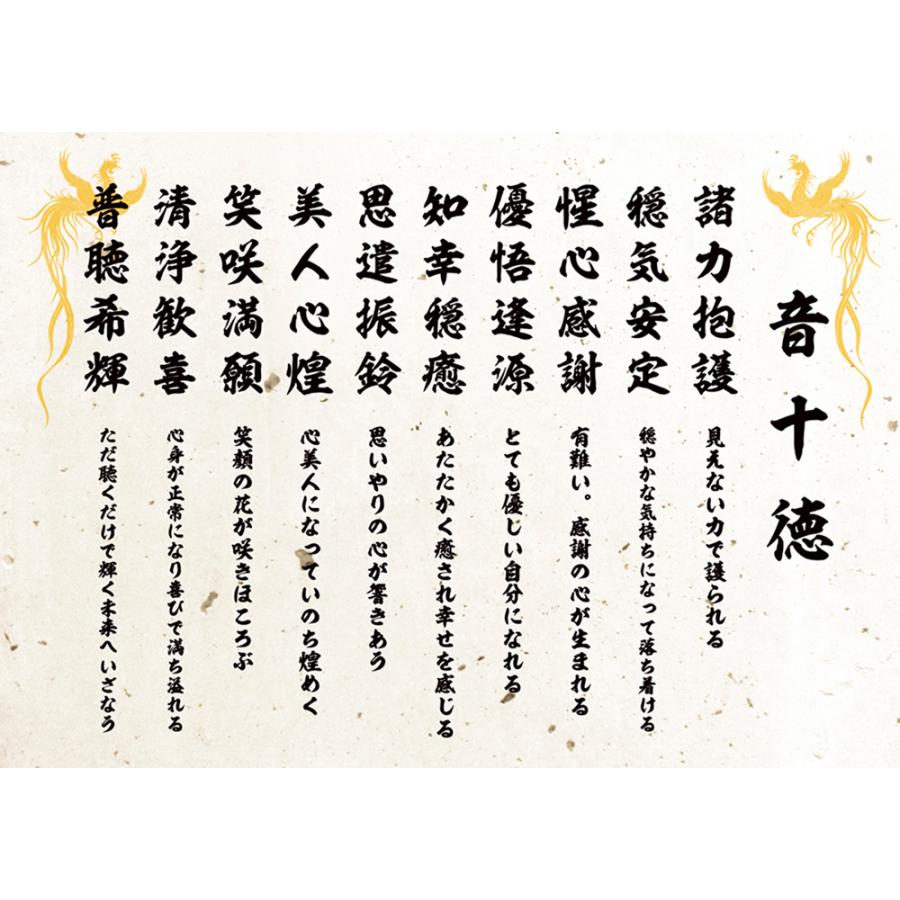 音十徳
諸力抱護 見えない力で護られる
穏気安定 穏やかな気持ちになって落ち着ける
惺心感謝 有難い。感謝の心が生まれる
優悟逢源 とても優しい自分になれる
知幸穏癒 あたたかく癒され幸せを感じる
思遣振鈴 思いやりの心が響きあう
美人心煌 心美人になっていのち煌めく
笑咲満願 笑顔の花が咲きほころぶ
清浄歓喜 心身が正常になり喜びで満ち溢れる
普聴希輝 ただ聴くだけで輝く未来へいざなう